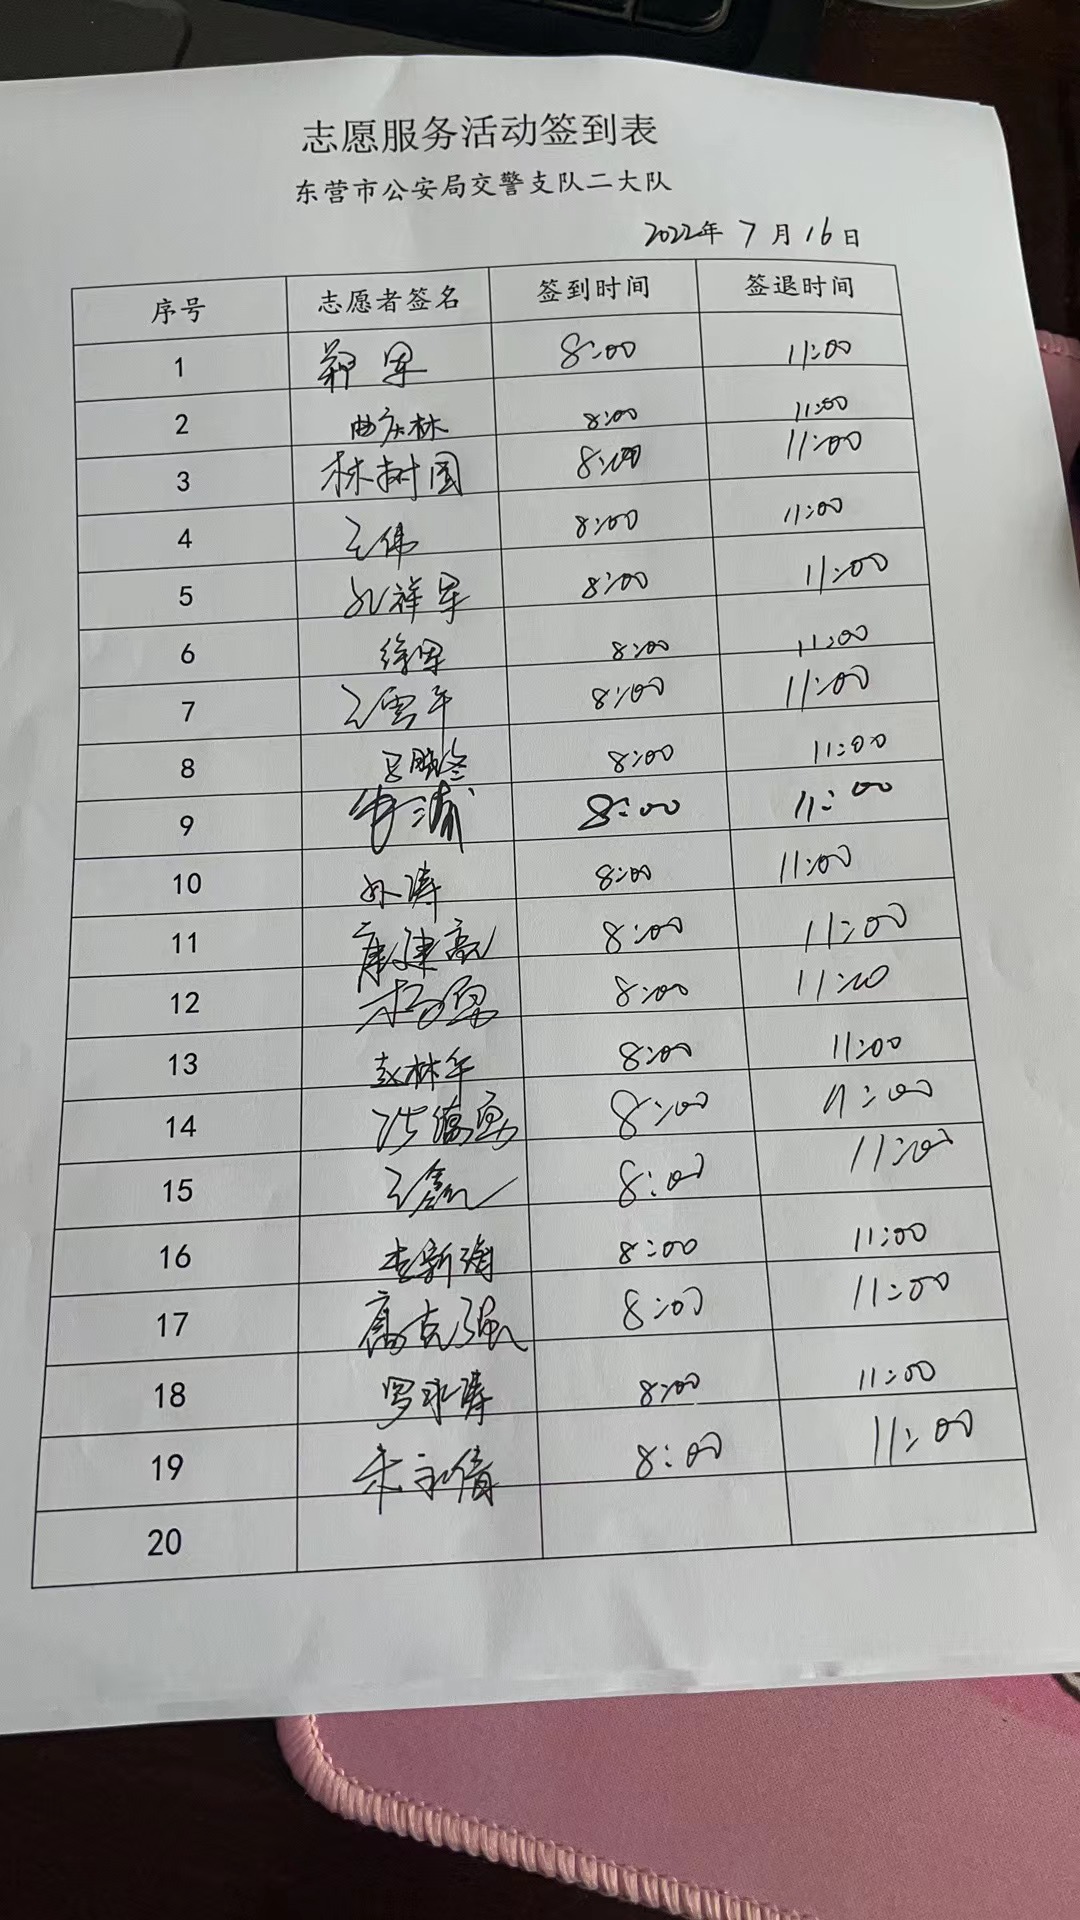 志愿服务活动签到表
东营市公安局交警支队二大队
2022年 7 月 16 日
序号 志愿者签名 签到时间 签退时间
1 郭军 8:00 11:00
2 曲庆林 8:00 11:00
3 林树国 8:00 11:00
4 王伟 8:00 11:00
5 祥军 8:00 11:00
6 徐军 8:00 11:00
7 王雪平 8:00 11:00
8 8:00 11:00
9 8:00 11:00
10 孙涛 8:00 11:00
11 康建 8:00 11:00
12 8:00 11:00
13 赵林军 8:00 11:00
14 8:00 11:00
15 王鑫 8:00 11:00
16 李新 8:00 11:00
17 高克强 8:00 11:00
18 罗永涛 8:00 11:00
19 朱永倩 8:00 11:00
20